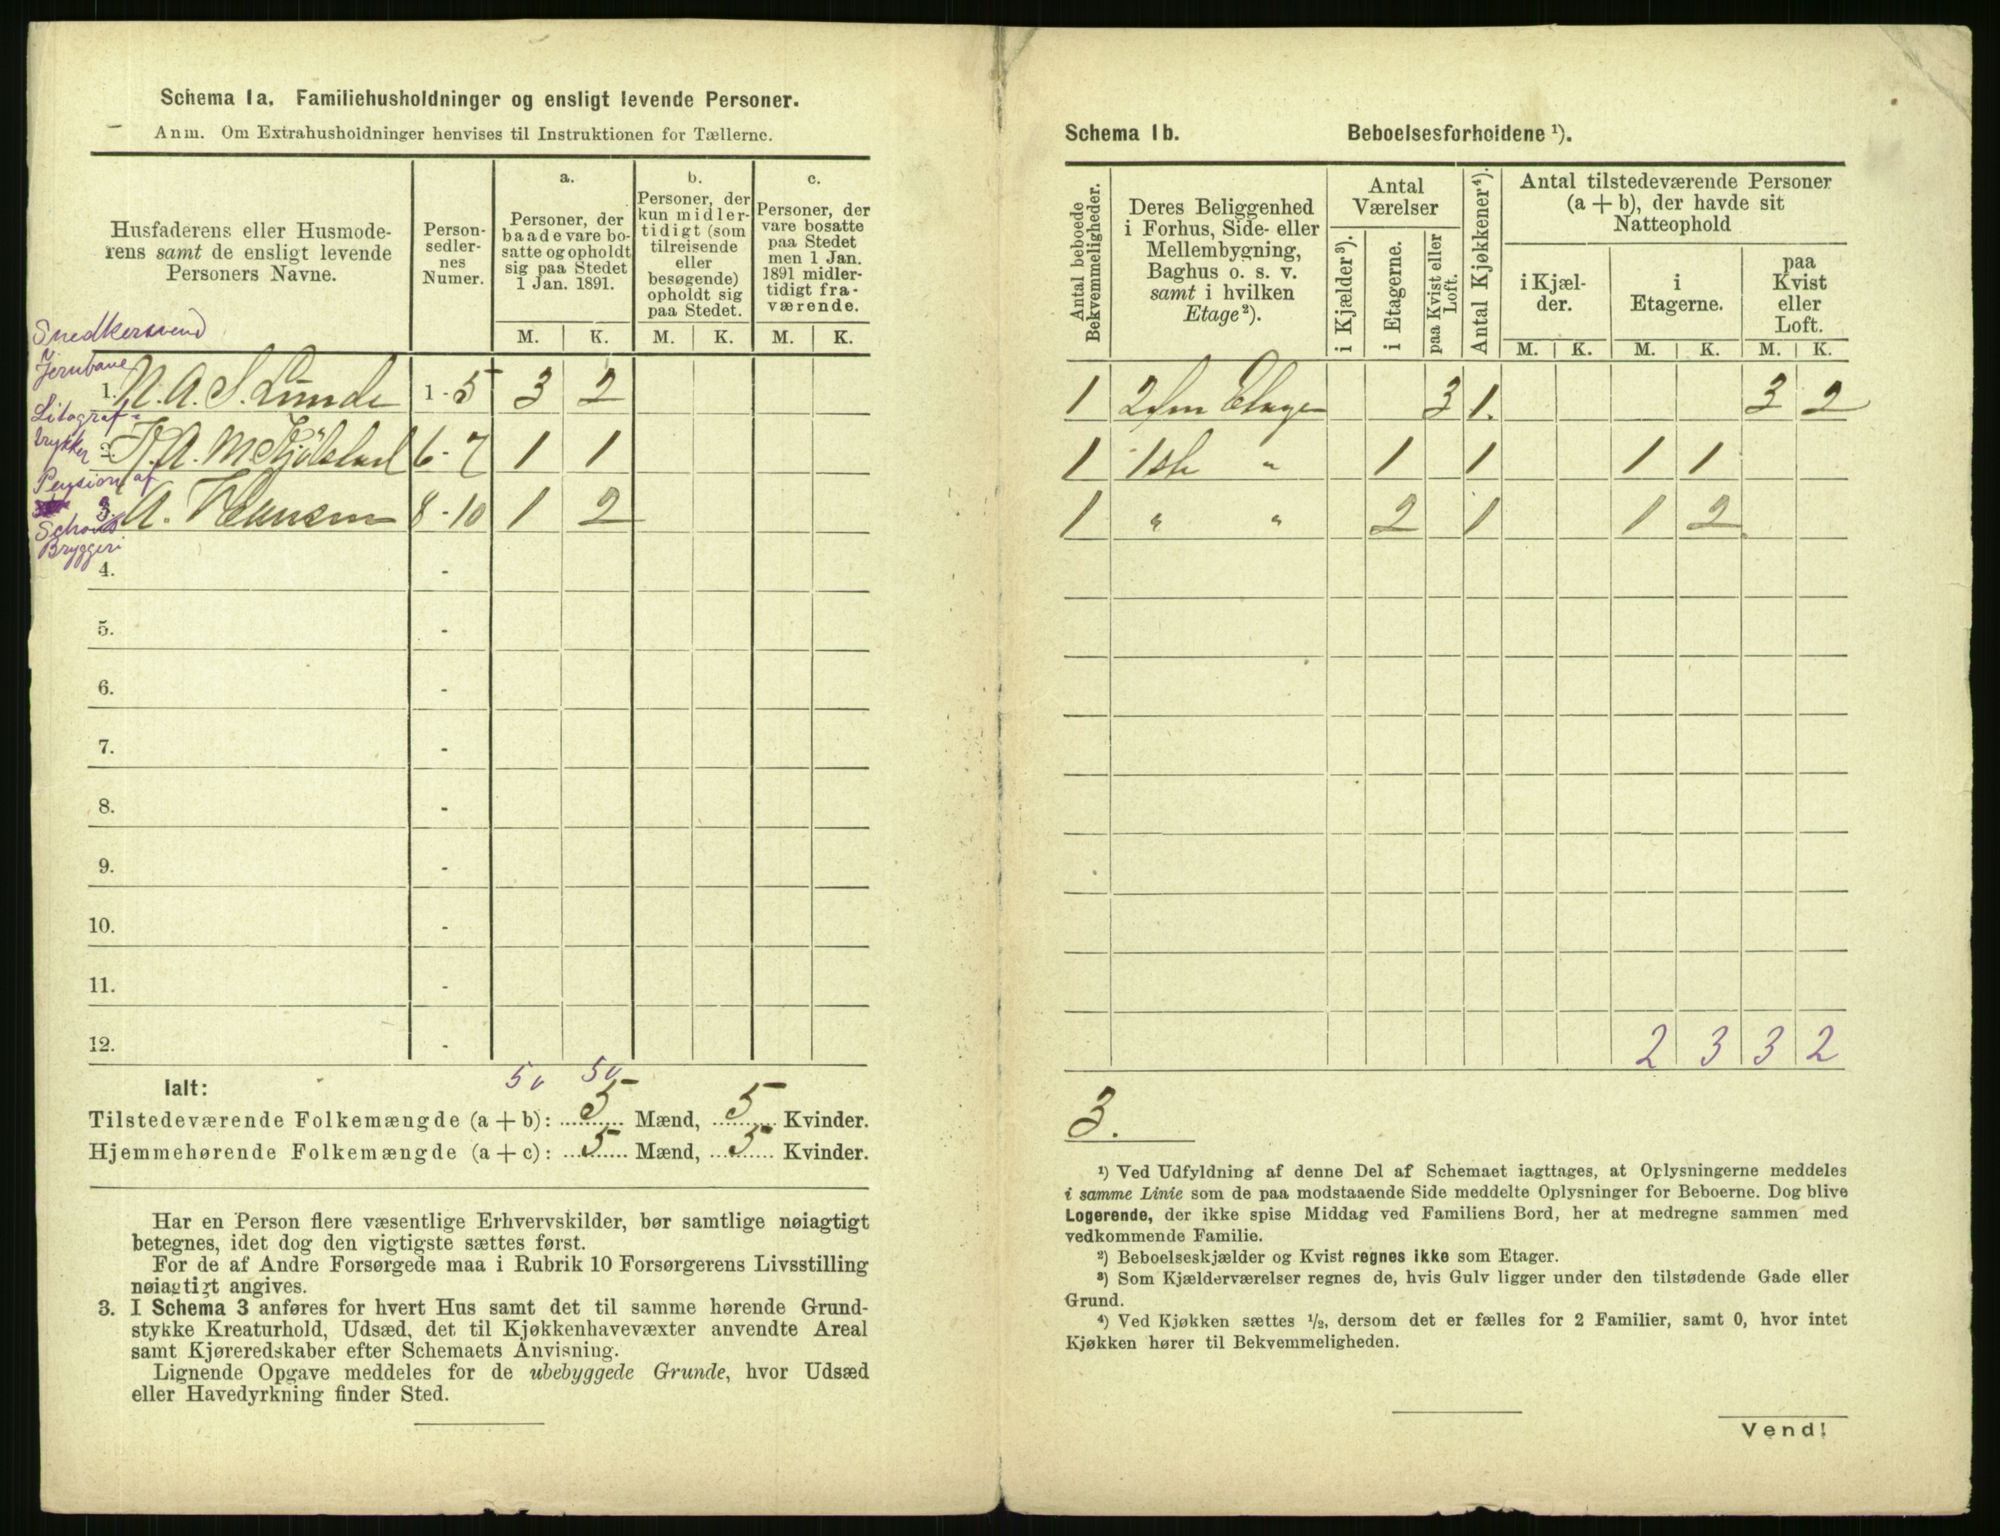 Schema 1a. Familiehusholdninger og ensligt levende Personer.
Anm. Om Extrahusholdninger henvises til Instruktionen for Tællerne.
Husfaderens eller Husmode-
rens samt de ensligt levende
Personers Navne.
Person-
sedler-
nes
Numer.
a.
Personer, der
baade vare bo-
satte og opholdt
sig paa Stedet
1 Jan. 1891.
b.
Personer, der
kun midler-
tidigt (som
tilreisende
eller
besøgende)
opholdt sig
paa Stedet.
c.
Personer, der
vare bosatte
paa Stedet
men 1 Jan.
1891 midler-
tidigt fra-
værende.
M. K. M. K. M. K.
Snedkersvend
Jernbane
1. N. A. S. Lunde 1-5 3 2
Litograf-
trykker
2. A. M. 6-7 1 1
Pension af
Schous
Bryggeri
3. A. Hansen 8-10 1 2
4. -
5. -
6. -
7. -
8. -
9. -
10. -
11. -
12. -
Ialt:
Tilstedeværende Folkemængde (a + b): 5 Mænd, 5 Kvinder.
Hjemmehørende Folkemængde (a + c): 5 Mænd, 5 Kvinder.
Har en Person flere væsentlige Erhvervskilder, bør samtlige nøiagtigt
betegnes, idet dog den vigtigste sættes først.
For de af Andre Forsørgede maa i Rubrik 10 Forsørgerens Livsstilling
nøiagtigt angives.
3. I Schema 3 anføres for hvert Hus samt det til samme hørende Grund-
stykke Kreaturhold, Udsæd, det til Kjøkkenhavevæxter anvendte Areal
samt Kjøreredskaber efter Schemaets Anvisning.
Lignende Opgave meddeles for de ubebyggede Grunde, hvor Udsæd
eller Havedyrkning finder Sted.
Schema 1b. Beboelsesforholdene ¹).
Antal beboede
Bekvemmeligheder.
Deres Beliggenhed
i Forhus, Side- eller
Mellembygning,
Baghus o. s. v.
samt i hvilken
Etage²).
Antal
Værelser
i Kjælder³).
i Etagerne.
paa Kvist eller
Loft.
Antal Kjøkkener⁴).
Antal tilstedeværende Personer
(a + b), der havde sit
Natteophold
i Kjæl-
der.
i
Etagerne.
paa
Kvist
eller
Loft.
M. K. M. K. M. K.
1 2den Etage 3 1. 3 2
1 1ste " 1 1 1 1
1 " " 2 1 1 2
2 3 3 2
3.
¹) Ved Udfyldning af denne Del af Schemaet iagttages, at Oplysningerne meddeles
i samme Linie som de paa modstaaende Side meddelte Oplysninger for Beboerne. Dog blive
Logerende, der ikke spise Middag ved Familiens Bord, her at medregne sammen med
vedkommende Familie.
²) Beboelseskjælder og Kvist regnes ikke som Etager.
³) Som Kjælderværelser regnes de, hvis Gulv ligger under den tilstødende Gade eller
Grund.
⁴) Ved Kjøkken sættes ½, dersom det er fælles for 2 Familier, samt 0, hvor intet
Kjøkken hører til Bekvemmeligheden.
Vend!